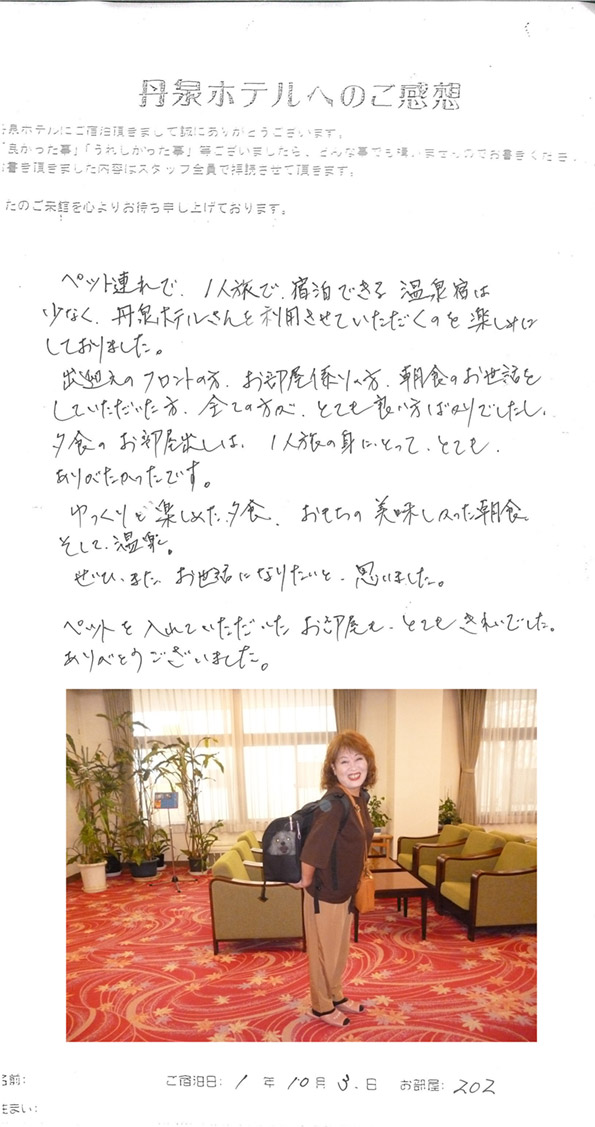 丹泉ホテルへのご感想
泉ホテルにご宿泊頂きまして誠にありがとうございます。
良かった事」「うれしかった事」等ございましたら、どんな事でも構いませんのでお書きくださ
書き頂きました内容はスタッフ全員で拝読させて頂きます。
たのご来館を心よりお待ち申し上げております。
ペット連れで、1人旅で、宿泊できる 温泉宿は
少なく、丹泉ホテルさんを利用させていただくのを楽しみに
しておりました。
出迎えのフロントの方、お部屋係りの方、朝食のお世話を
していただいた方、全ての方が、とても良い方ばかりでしたし、
夕食の お部屋出しは、1人旅の身にとって、とても、
ありがたかったです。
ゆっくりと 楽しめた夕食、おもちの 美味しかった朝食、
そして、温泉。
ぜひ、また お世話になりたいと、思いました。
ペットを 入れていただいた お部屋も、とても きれいでした。
ありがとうございました。
名前: ご宿泊日: 1 年 10 月 3 日 お部屋: 202
住まい: